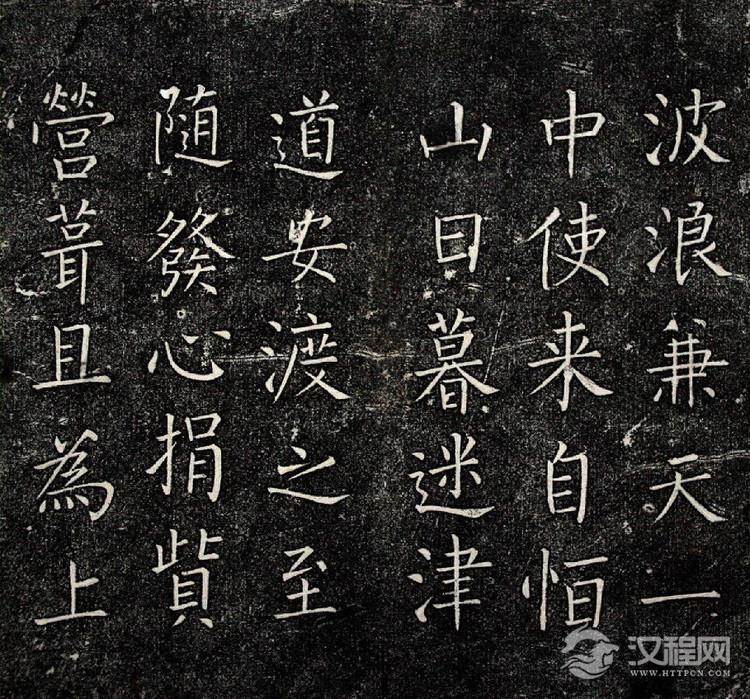 波浪兼天一
中使来自恒
山日暮迷津
道安渡之至
随發心捐貲
營葺且為上
汉程网
WWW.HTTPCN.COM